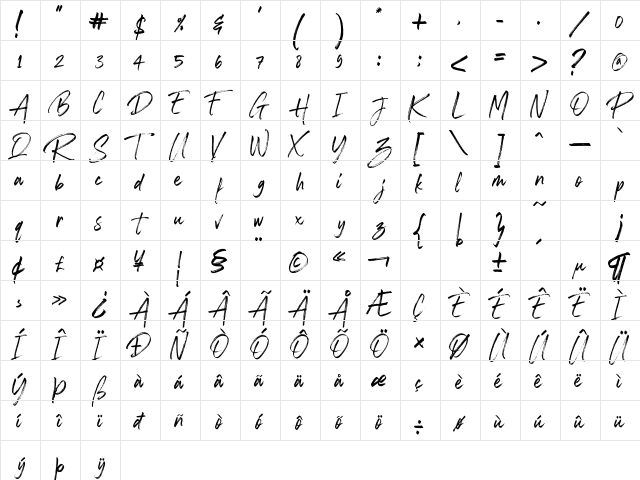 ! " # $ % & ' ( ) * + , - . / 0
1 2 3 4 5 6 7 8 9 : ; < = > ? @
A B C D E F G H I J K L M N O P
Q R S T U V W X Y Z [ \ ] ^ _ `
a b c d e f g h i j k l m n o p
q r s t u v w x y z { | } ~ ¡
¢ £ ¤ ¥ ¦ § ¨ © « ¬ ± ´ µ ¶
¸ » ¿ À Á Â Ã Ä Å Æ Ç È É Ê Ë Ì
Í Î Ï Ð Ñ Ò Ó Ô Õ Ö × Ø Ù Ú Û Ü
Ý Þ ß à á â ã ä å æ ç è é ê ë ì
í î ï ð ñ ò ó ô õ ö ÷ ø ù ú û ü
ý þ ÿ